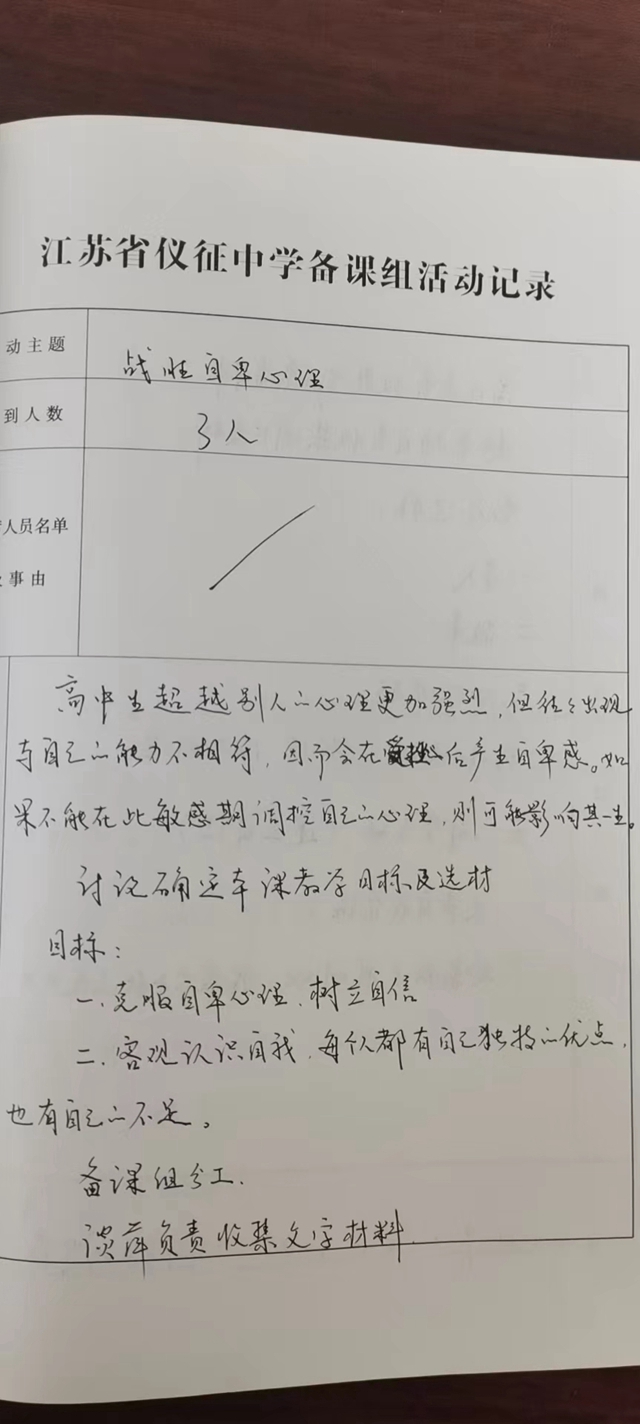 江苏省仪征中学备课组活动记录
动主题 战胜自卑心理
到人数 3人
人员名单
事由
高中生超越别人的心理更加强烈,但往往出现
与自己的能力不相符,因而会在受挫后产生自卑感。如
果不能在此敏感期调控自己的心理,则可能影响其一生。
讨论确定本课教学目标及选材
目标:
一.克服自卑心理、树立自信
二.客观认识自我,每个人都有自己独特的优点,
也有自己的不足。
备课组分工.
谈萍负责收集文字材料.